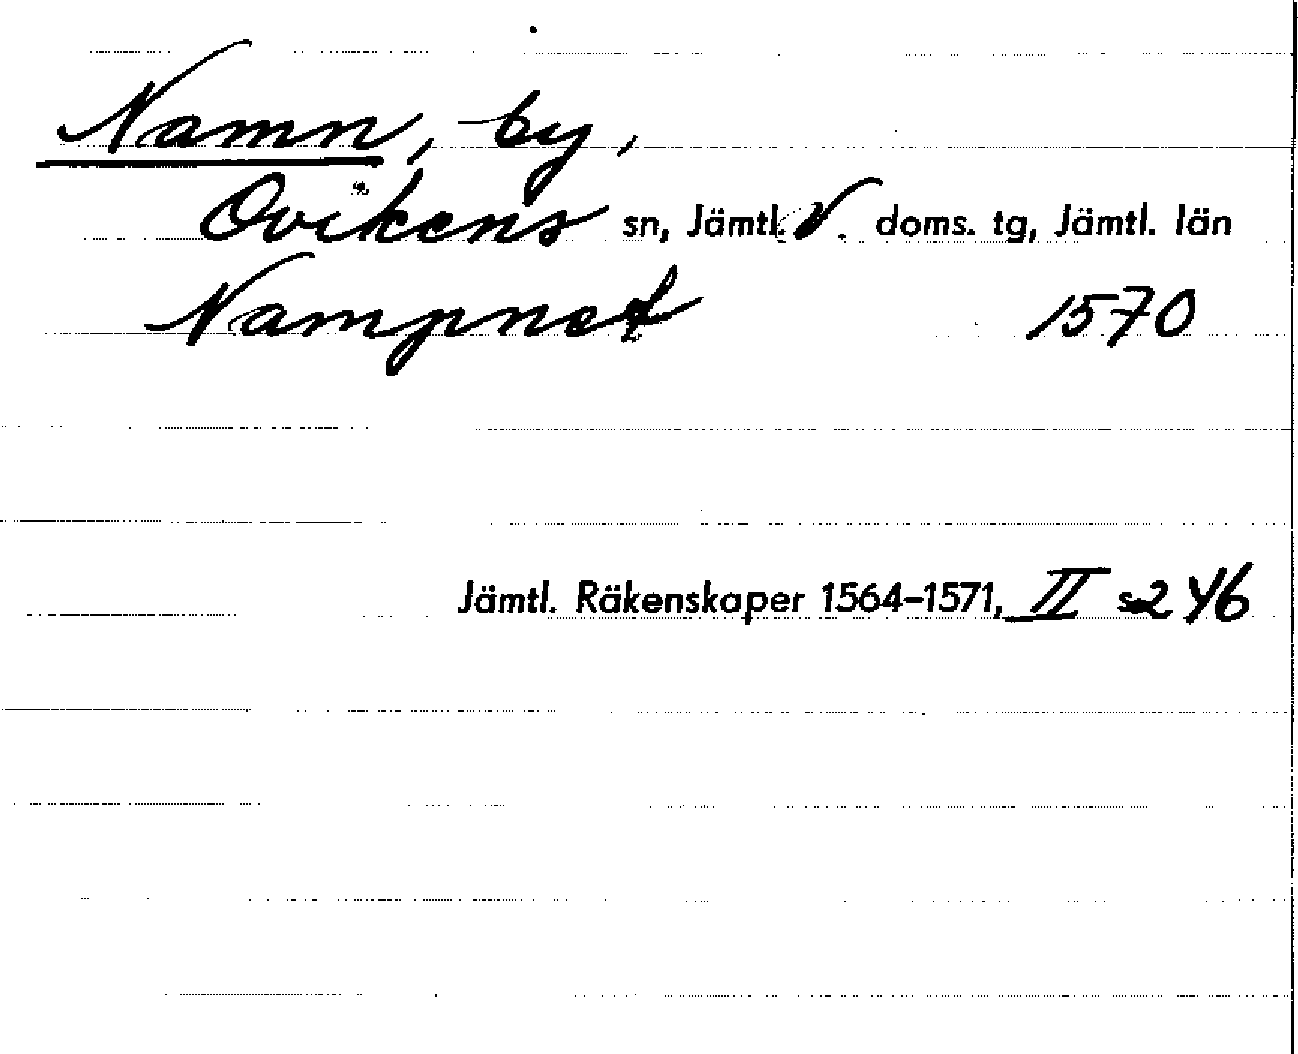 Namn, by,
Ovikens sn, Jämtl. V. doms. tg, Jämtl. län
Nampnet 1570
Jämtl. Räkenskaper 1564-1571, II s. 246